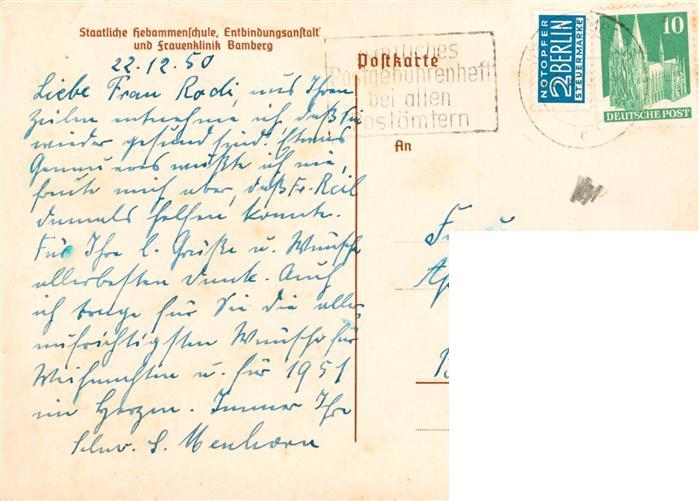 Staatliche Hebammenschule, Entbindungsanstalt
und Frauenklinik Bamberg
22.12.50
Liebe Frau Rodi, aus Ihren
Zeilen entnehme ich daß Sie
wieder gesund sind. Etwas
Genaueres wußte ich nie,
freute mich aber, daß Fr. Reil
damals helfen konnte.
Für Ihre l. Grüße u. Wünsche
allerbesten Dank. Auch
ich trage für Sie die aller
aufrichtigsten Wünsche für
Weihnachten u. für 1951
im Herzen. Immer Ihre
Schw. S.
Postkarte
An
amtliches
Postgebührenheft
bei allen
Postämtern
NOTOPFER
2 BERLIN
STEUERMARKE
10
DEUTSCHE POST
C